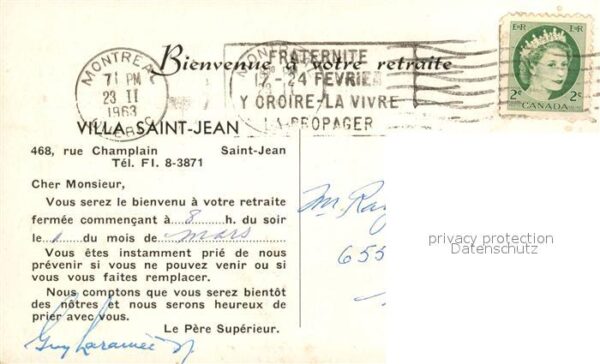 Bienvenue à votre retraite
MONTREAL
7 PM
23 II
1963
QUEBEC
FRATERNITE
17-24 FEVRIER
Y CROIRE-LA VIVRE
LA PROPAGER
E II R E II R
2c 2c
CANADA
VILLA SAINT-JEAN
468, rue Champlain Saint-Jean
Tél. FI. 8-3871
Cher Monsieur,
Vous serez le bienvenu à votre retraite
fermée commençant à 8 h. du soir
le 1 du mois de mars
Vous êtes instamment prié de nous
prévenir si vous ne pouvez venir ou si
vous vous faites remplacer.
Nous comptons que vous serez bientôt
des nôtres et nous serons heureux de
prier avec vous.
Le Père Supérieur.
Guy Laramée sj
M. Ray
655
privacy protection
Datenschutz